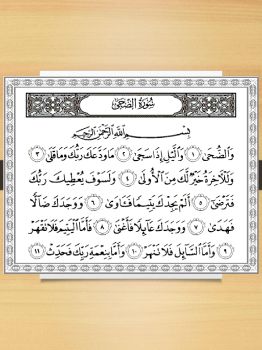 سُورَةُ الضُّحَىٰ
بِسْمِ اللَّهِ الرَّحْمَٰنِ الرَّحِيمِ
وَالضُّحَىٰ ١ وَاللَّيْلِ إِذَا سَجَىٰ ٢ مَا وَدَّعَكَ رَبُّكَ وَمَا قَلَىٰ ٣
وَلَلْآخِرَةُ خَيْرٌ لَكَ مِنَ الْأُولَىٰ ٤ وَلَسَوْفَ يُعْطِيكَ رَبُّكَ
فَتَرْضَىٰ ٥ أَلَمْ يَجِدْكَ يَتِيمًا فَآوَىٰ ٦ وَوَجَدَكَ ضَالًّا
فَهَدَىٰ ٧ وَوَجَدَكَ عَائِلًا فَأَغْنَىٰ ٨ فَأَمَّا الْيَتِيمَ فَلَا تَقْهَرْ
٩ وَأَمَّا السَّائِلَ فَلَا تَنْهَرْ ١٠ وَأَمَّا بِنِعْمَةِ رَبِّكَ فَحَدِّثْ ١١